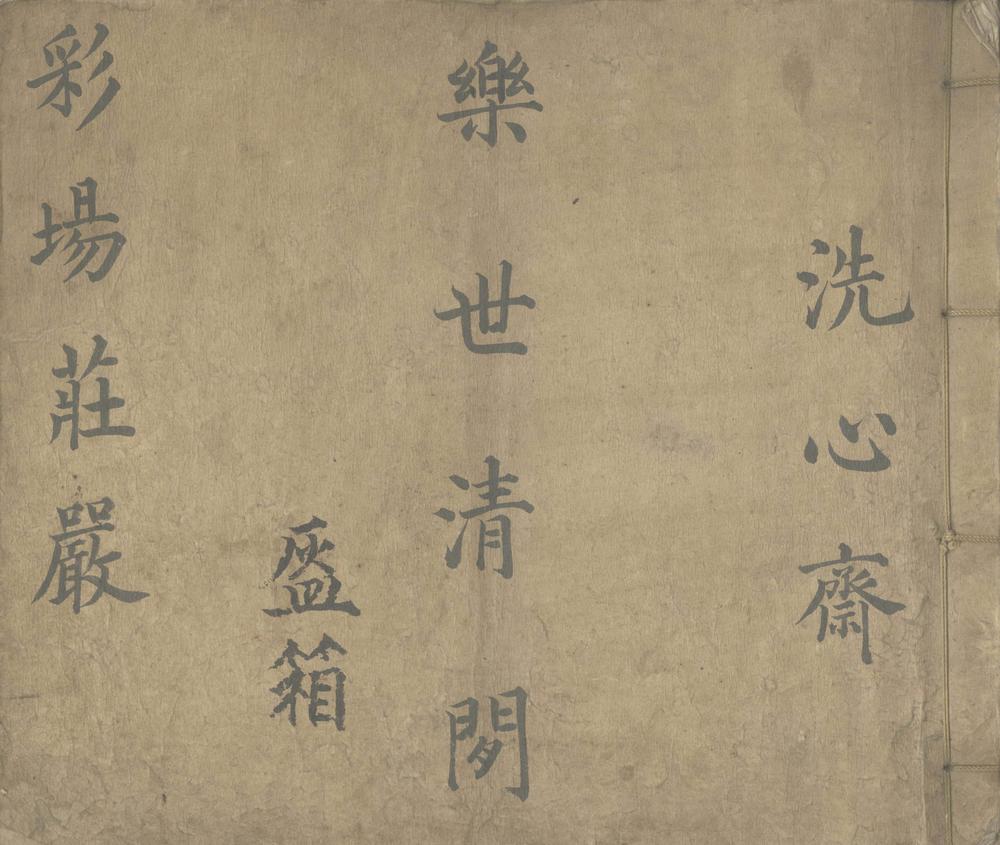 洗心齋
樂世清閒
盔箱
彩場莊嚴